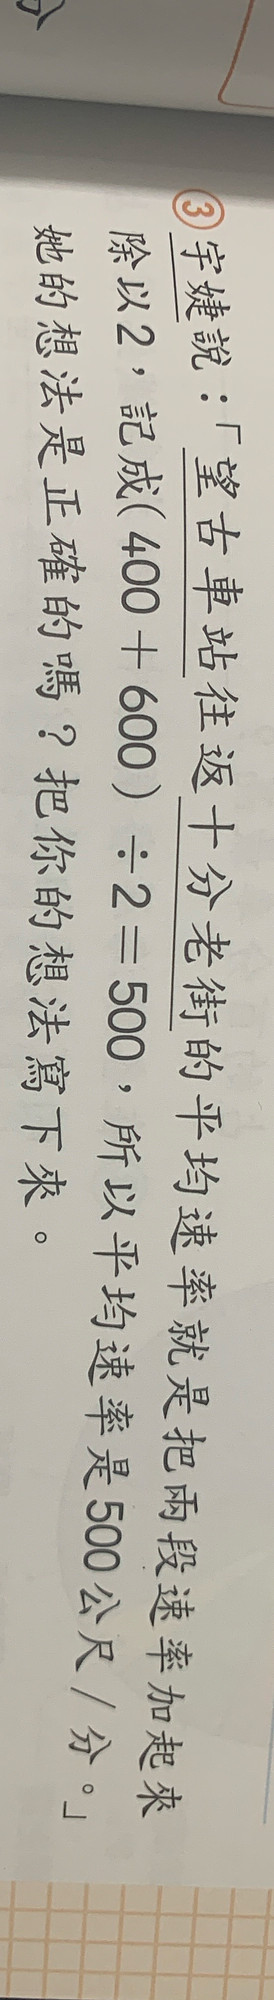 ③宇婕說：「望古車站往返十分老街的平均速率就是把兩段速率加起來
除以2，記成(400＋600)÷2＝500，所以平均速率是500公尺/分。」
她的想法是正確的嗎？把你的想法寫下來。